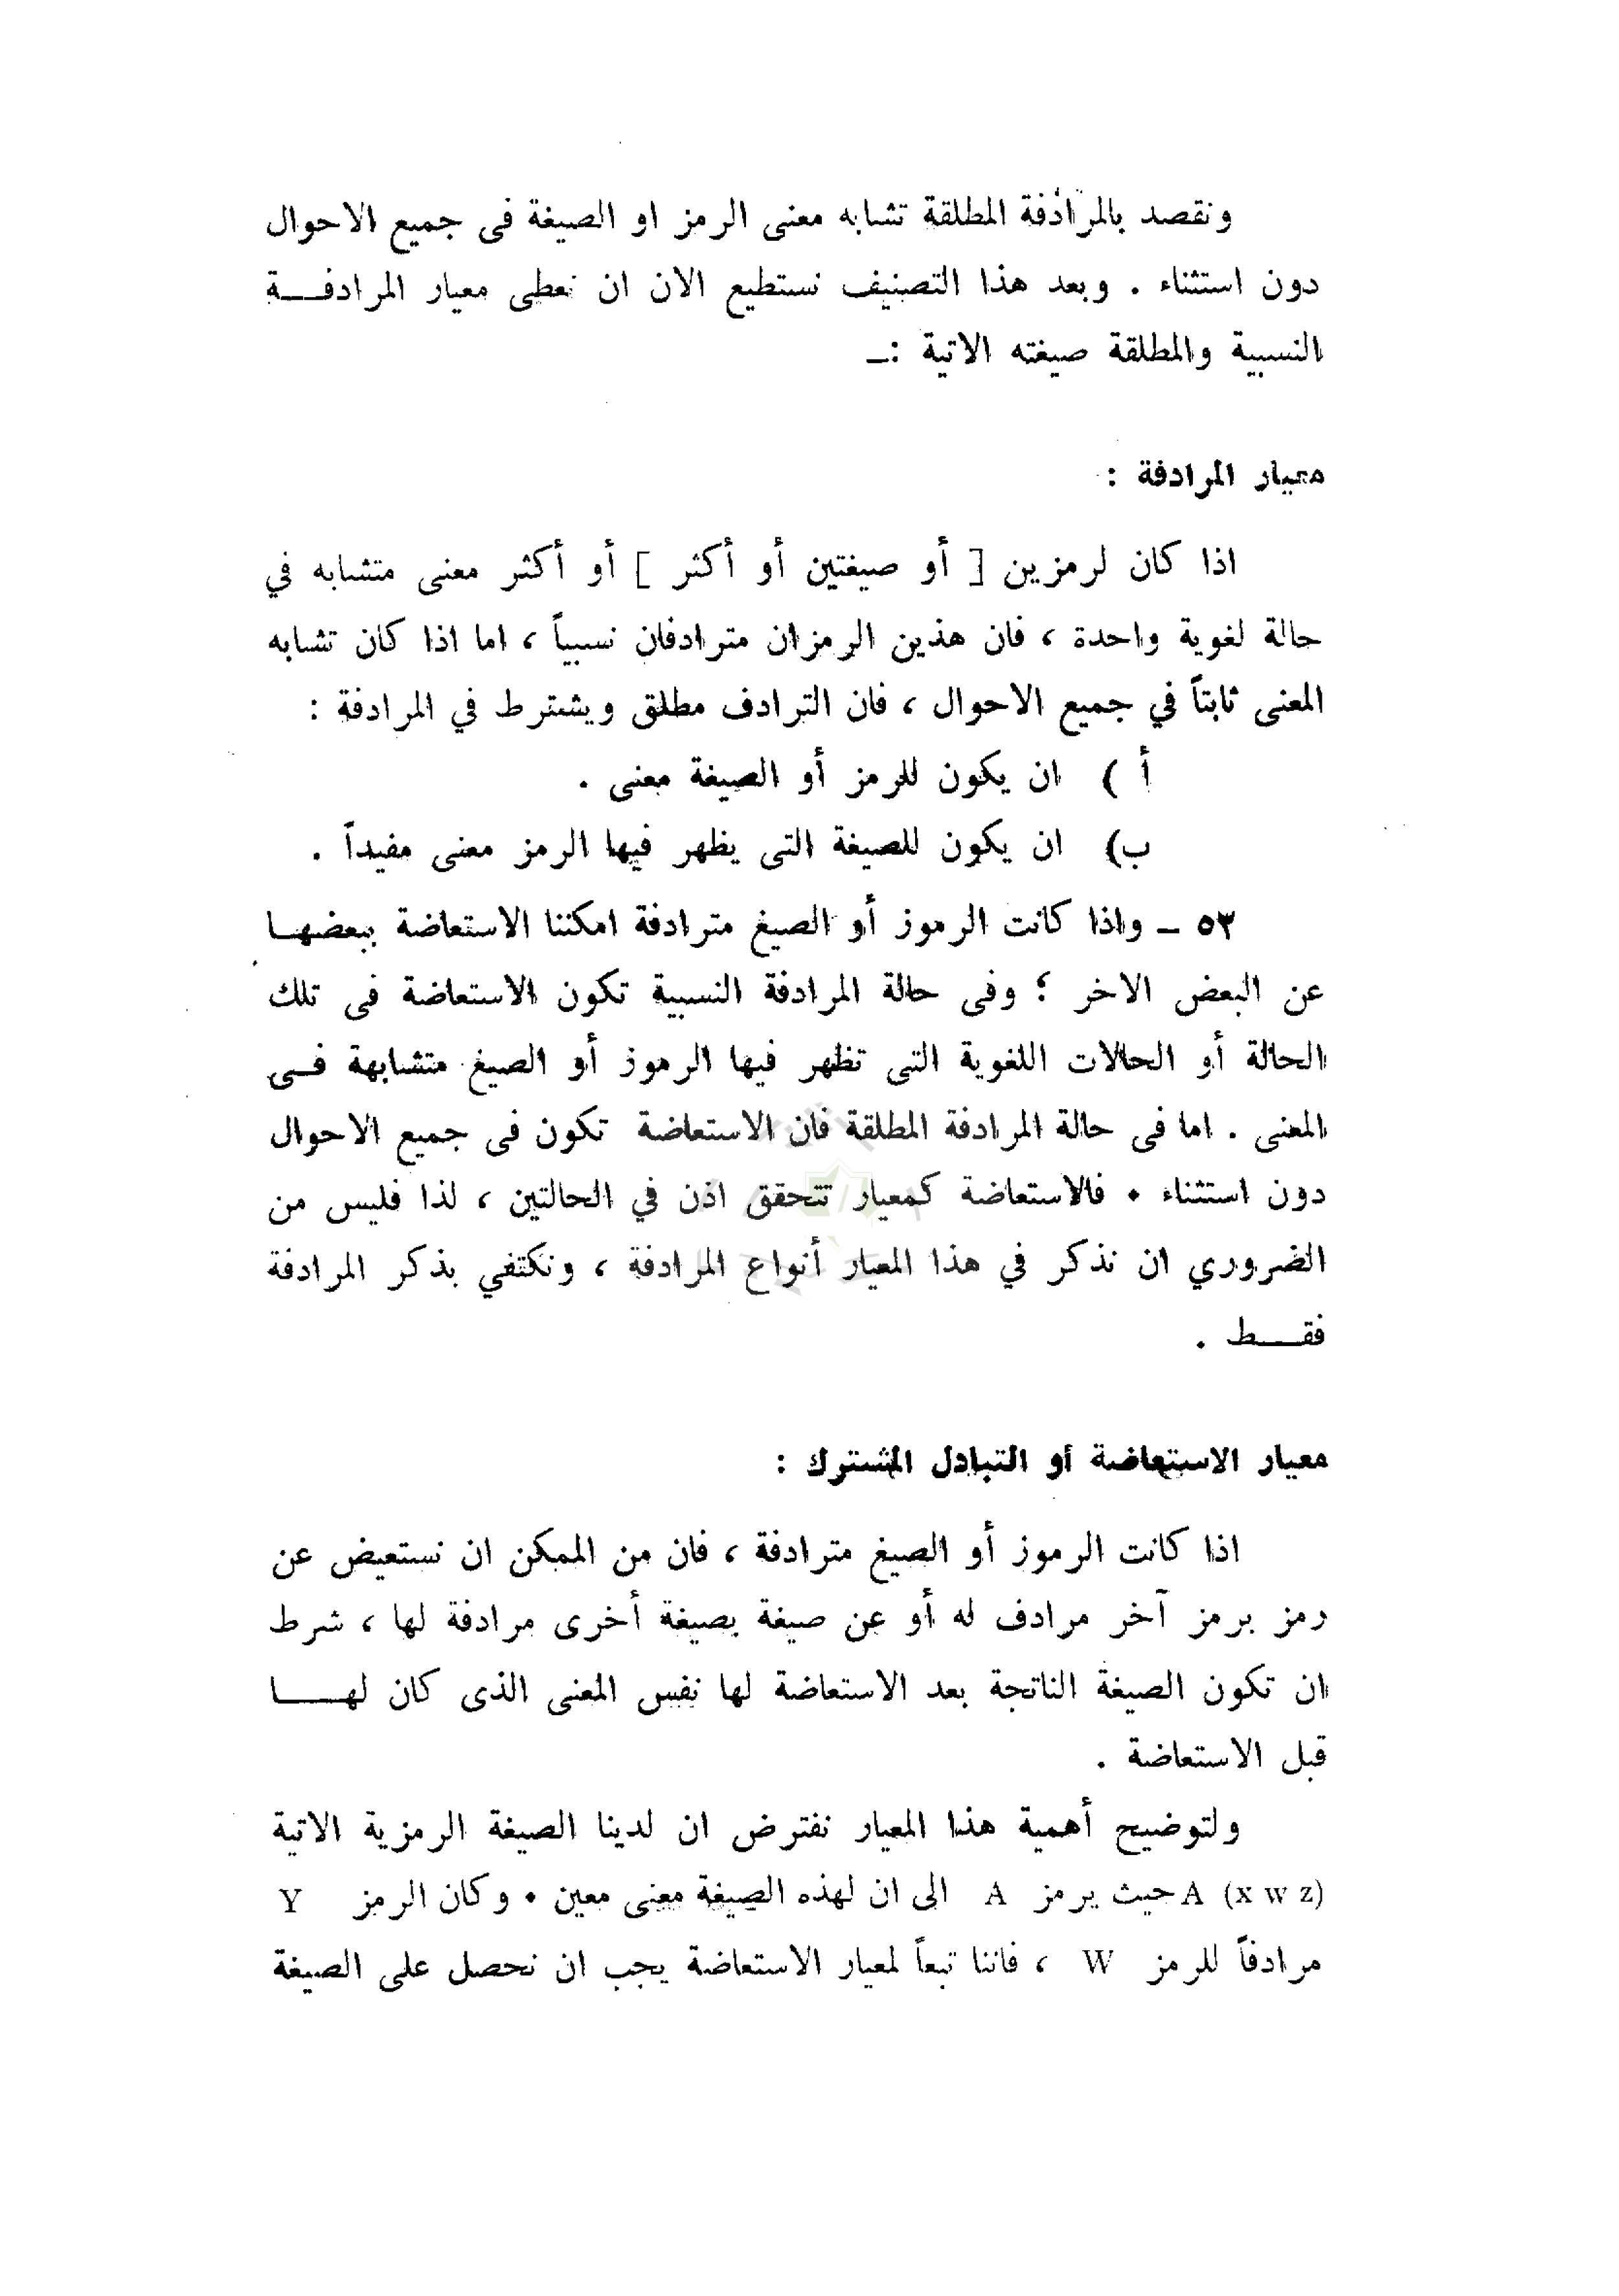 ونقصد بالمرادفة المطلقة تشابه معنى الرمز او الصيغة فى جميع الاحوال
دون استثناء . وبعد هذا التصنيف نستطيع الان ان نعطى معيار المرادفــة
النسبية والمطلقة صيغته الاتية :ـ
معيار المرادفة :
اذا كان لرمزين [ أو صيغتين أو أكثر ] أو أكثر معنى متشابه في
حالة لغوية واحدة ، فان هذين الرمزان مترادفان نسبياً ، اما اذا كان تشابه
المعنى ثابتاً في جميع الاحوال ، فان الترادف مطلق ويشترط في المرادفة :
أ ) ان يكون للرمز أو الصيغة معنى .
ب) ان يكون للصيغة التى يظهر فيها الرمز معنى مفيداً .
٥٣ ـ واذا كانت الرموز أو الصيغ مترادفة امكننا الاستعاضة ببعضهــا
عن البعض الاخر ؛ وفى حالة المرادفة النسبية تكون الاستعاضة فى تلك
الحالة أو الحالات اللغوية التى تظهر فيها الرموز أو الصيغ متشابهة فــى
المعنى . اما فى حالة المرادفة المطلقة فان الاستعاضة تكون فى جميع الاحوال
دون استثناء . فالاستعاضة كمعيار تتحقق اذن في الحالتين ، لذا فليس من
الضروري ان نذكر في هذا المعيار أنواع المرادفة ، ونكتفي بذكر المرادفة
فقــط .
معيار الاستعاضة أو التبادل المشترك :
اذا كانت الرموز أو الصيغ مترادفة ، فان من الممكن ان نستعيض عن
رمز برمز آخر مرادف له أو عن صيغة بصيغة أخرى مرادفة لها ، شرط
ان تكون الصيغة الناتجة بعد الاستعاضة لها نفس المعنى الذى كان لهــا
قبل الاستعاضة .
ولتوضيح أهمية هذا المعيار نفترض ان لدينا الصيغة الرمزية الاتية
A (x w z) حيث يرمز A الى ان لهذه الصيغة معنى معين . وكان الرمز Y
مرادفاً للرمز W ، فاننا تبعاً لمعيار الاستعاضة يجب ان نحصل على الصيغة